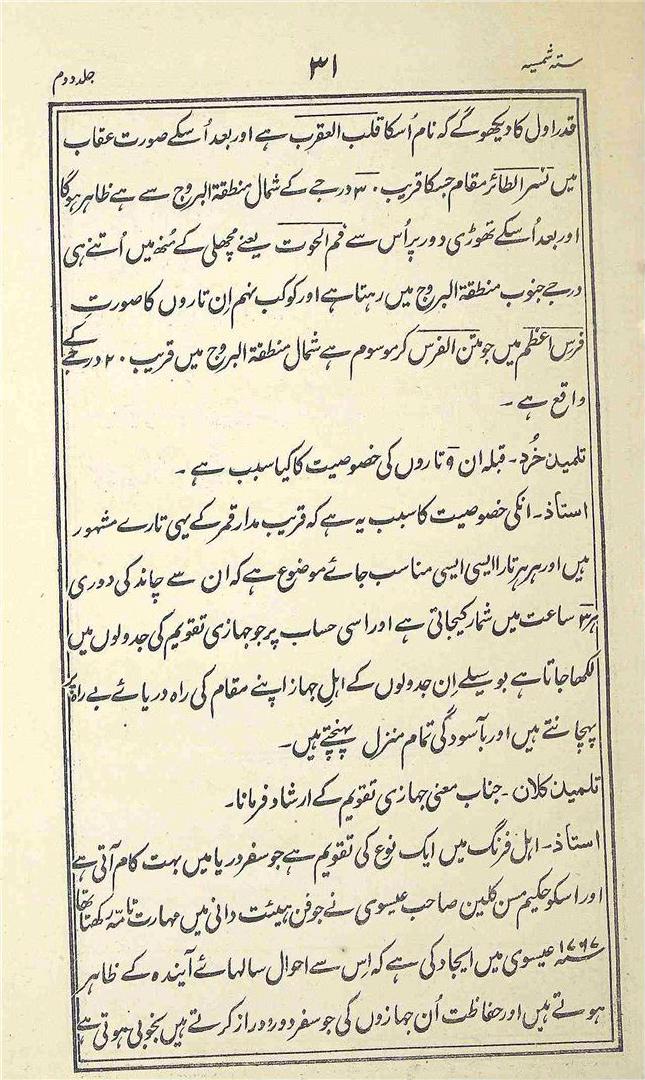 ستہ شمسیہ
۳۱
جلد دوم
قدر اول کا دیکھو گے کہ نام اُسکا قلب العقرب ہے اور بعد اُسکے صورت عقاب
میں نسر الطائر مقام جسکا قریب ۳۰ درجے کے شمال منطقۃ البروج سے ہے ظاہر ہوگا
اور بعد اُسکے تھوڑی دور پر اُس سے فم الحوت یعنے مچھلی کے مُنھ میں اُتنے ہی
درجے جنوب منطقۃ البروج میں رہتا ہے اور کوکب نہم اِن تاروں کا صورتِ
فرس اعظم میں جو متن الفرس کر موسوم ہے شمال منطقۃ البروج میں قریب ۲۰ درجے کے
واقع ہے ۔
تلمیذ خُرد ۔ قبلہ ان ۹ تاروں کی خصوصیت کا کیا سبب ہے ۔
استاذ ۔ انکی خصوصیت کا سبب یہ ہے کہ قریب مدار قمر کے یہی تارے مشہور
ہیں اور ہر ہر تارا ایسی ایسی مناسب جائے موضوع ہے کہ ان سے چاند کی دوری
ہر ۳ ساعت میں شمار کیجاتی ہے اور اسی حساب پر جو جہازی تقویم کی جدولوں میں
لکھا جاتا ہے بوسیلے اِن جدولوں کے اہل جہاز اپنے مقام کی راہ دریائے بے راہ پر
پہچانتے ہیں اور بآسودگی تمام منزل پہنچتے ہیں ۔
تلمیذ کلان ۔ جناب معنی جہازی تقویم کے ارشاد فرمانا ۔
استاذ ۔ اہل فرنگ میں ایک نوع کی تقویم ہے جو سفر دریا میں بہت کام آتی ہے
اور اسکو حکیم مسن کلین صاحب عیسوی نے جو فن ہیئت دانی میں مہارت تامّہ رکھتا تھا
۱۷۶۷ سنہ عیسوی میں ایجاد کی ہے کہ اِس سے احوال سالہائے آیندہ کے ظاہر
ہوتے ہیں اور حفاظت اُن جہازوں کی جو سفر دور و دراز کرتے ہیں بخوبی ہوتی ہے